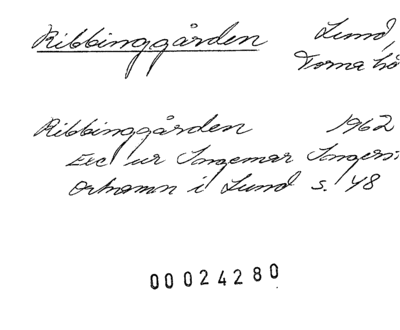 Ribbinggården Lund,
Torna hä
Ribbinggården 1962
Exc ur Ingemar Ingers:
Ortnamn i Lund s. 48
00024280